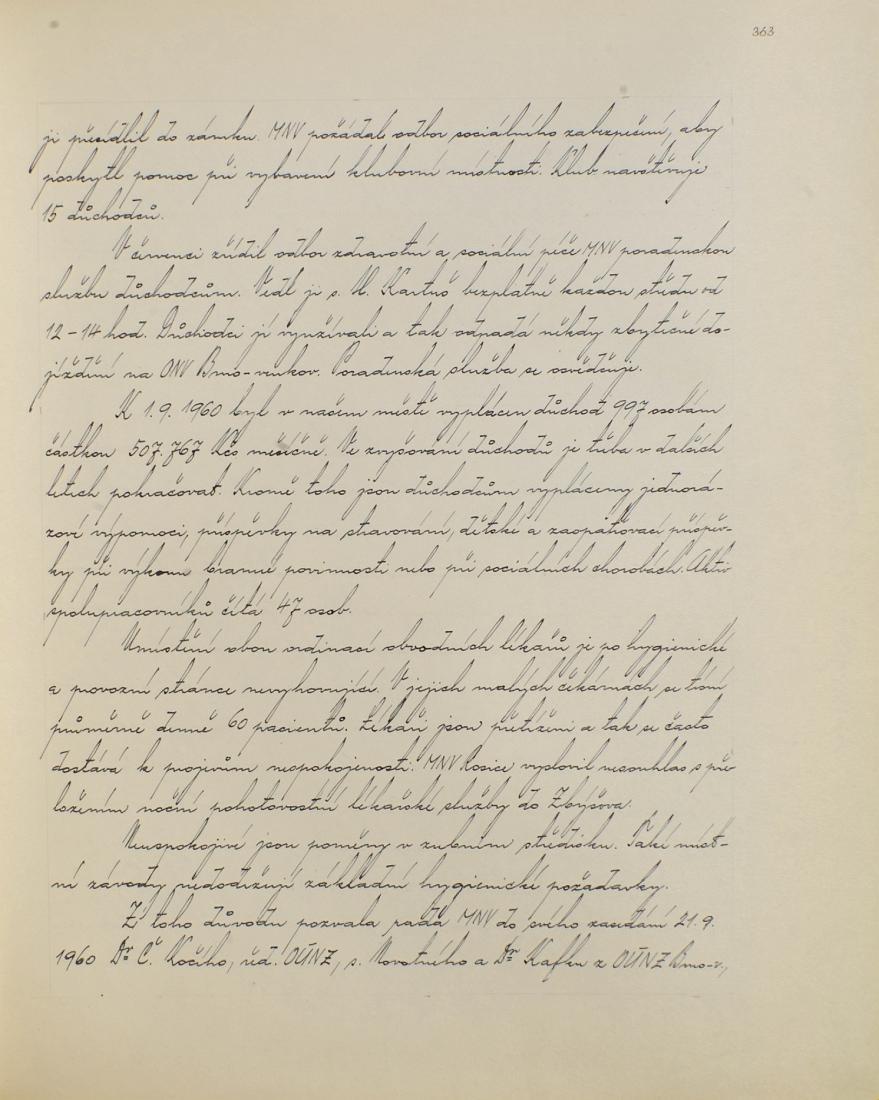 363
ji přesídlil do zámku. MNV požádal odbor sociálního zabezpečení, aby
poskytl pomoc při vybavení klubovní místnosti. Klub navštěvuje
15 důchodců.
V červenci zřídil odbor zdravotní a sociální péče MNV poradenskou
službu důchodcům. Vedl ji s. Kartus bezplatně každou středu od
12-14 hod. Důchodci jí využívali a tak odpadá někdy zbytečné do-
jíždění na ONV Brno-venkov. Poradenská služba se osvědčuje.
K 1.9. 1960 byl v našem městě vyplácen důchod 997 osobám
částkou 507.767 Kčs měsíčně. Ve zvyšování důchodů je třeba v dalších
letech pokračovat. Kromě toho jsou důchodcům vypláceny jednorá-
zové výpomoci, příspěvky na stravování, dětské a zaopatřovací příspěv-
ky při výkonu branné povinnosti nebo při sociálních chorobách. Aktiv
spolupracovníků čítá 47 osob.
Umístění obou ordinací obvodních lékařů je po hygienické
a provozní stránce nevyhovující. V jejich malých čekárnách se tísní
průměrně denně 60 pacientů. Lékaři jsou přetíženi a tak se často
dostává k projevům nespokojenosti. MNV Rosice vyslovil nesouhlas s pře-
ložením noční pohotovostní lékařské služby do Zbýšova.
Neuspokojivé jsou poměry v zubním středisku. Také míst-
ní závody nedodržují základní hygienické požadavky.
Z toho důvodu pozvala rada MNV do svého zasedání 21.9.
1960 Dr Č. Kočího, řed. OÚNZ, s. Novotného a Dr Kafku z OÚNZ Brno-v.,